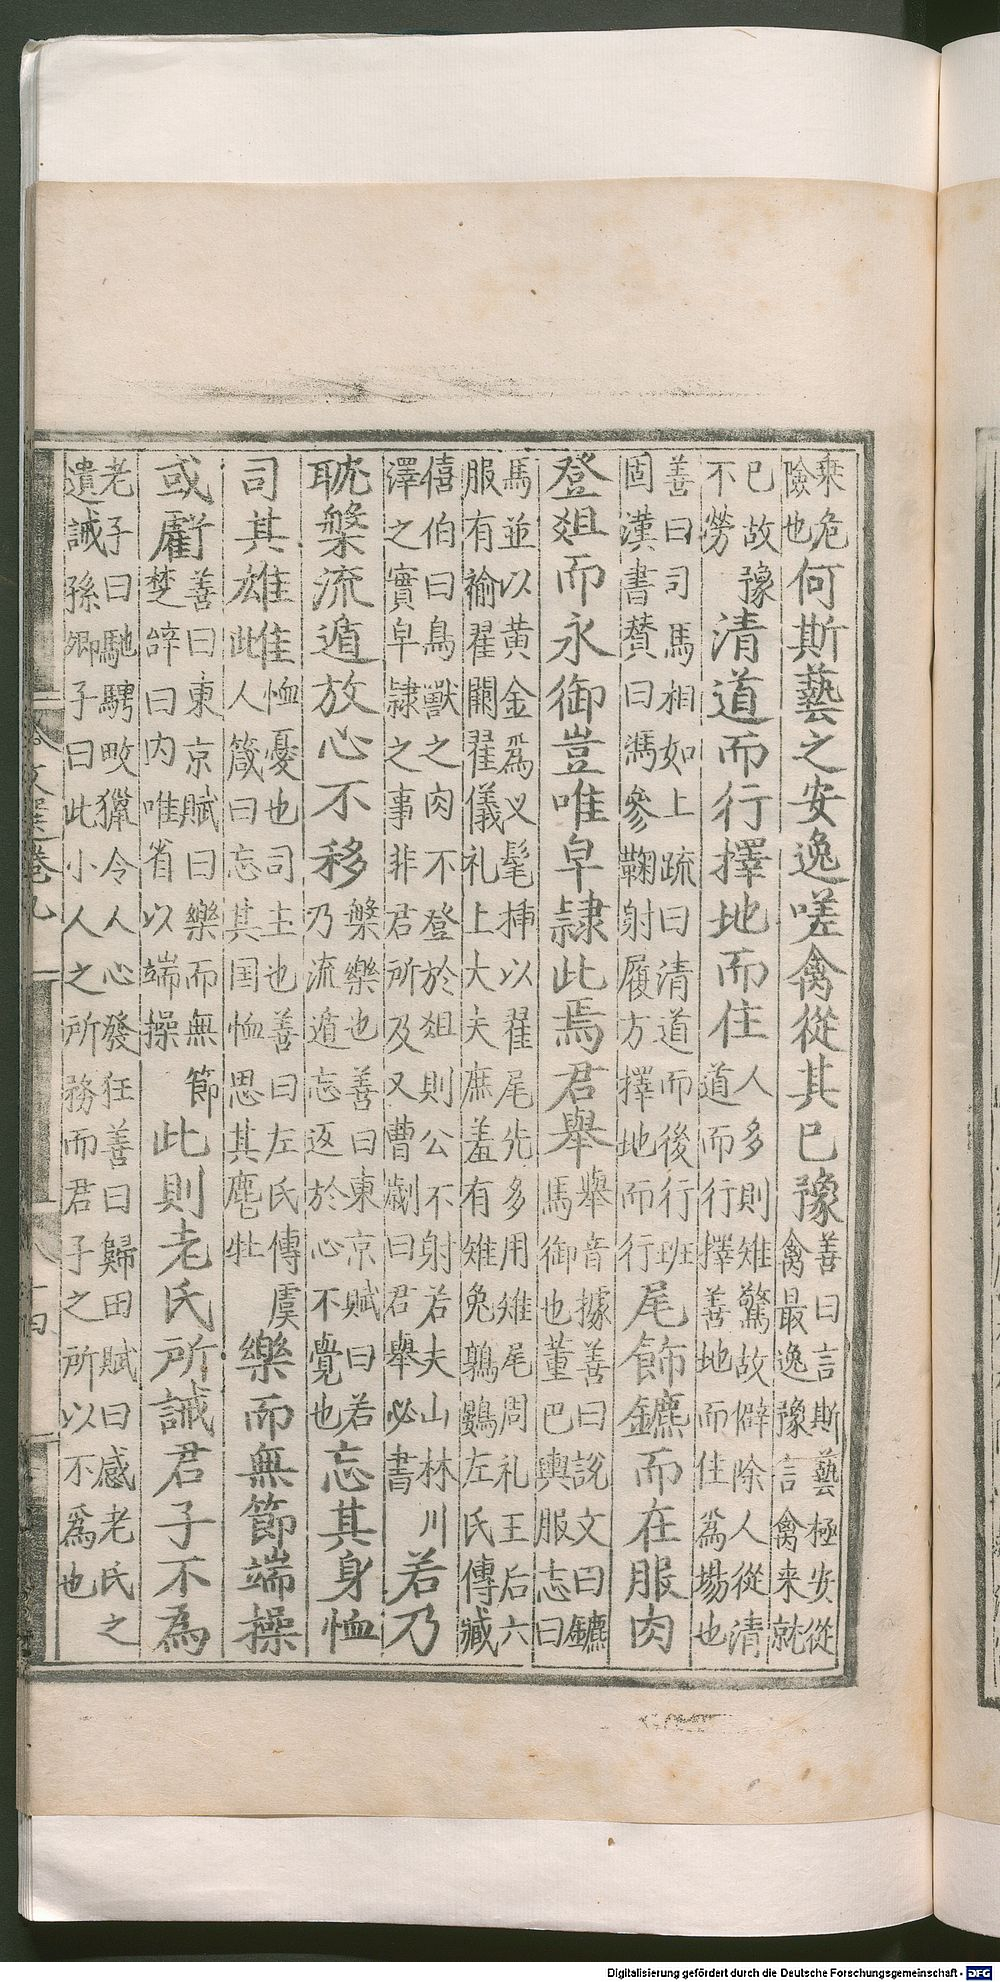 乗危
險也
何斯藝之安逸嗟禽從其已豫
善曰言斯藝極安從
禽最逸豫言禽来就
已故豫
不勞
清道而行擇地而住
人多則雉驚故僻除人從清
道而行擇善地而住爲場也
善曰司馬相如上疏曰清道而後行班
固漢書賛曰馮參鞠躬履方擇地而行
尾飾鑣而在服肉
登俎而永御豈唯皁隷此焉君舉
舉音據善曰說文曰鑣
馬御也董巴輿服志曰
馬並以黄金爲叉髦揷以翟尾先多用雉尾周礼王后六
服有褕翟闕翟儀礼上大夫庶羞有雉兔鶉鷃左氏傳臧
僖伯曰鳥獸之肉不登於俎則公不射若夫山林川
澤之實皁隷之事非君所及又曹劌曰君舉必書
若乃
耽槃流遁放心不移
槃樂也善曰東京賦曰若
乃流遁忘返於心不覺也
忘其身恤
司其雄雌
恤憂也司主也善曰左氏傳虞
此人箴曰忘其国恤思其麀牡
樂而無節端操
或虧
善曰東京賦曰樂而無節
楚辞曰内唯省以端操
此則老氏所誡君子不為
老子曰馳騁畋獵令人心發狂善曰歸田賦曰感老氏之
遺誡孫卿子曰此小人之所務而君子之所以不爲也
文選卷九
十四
Digitalisierung gefördert durch die Deutsche Forschungsgemeinschaft - DFG